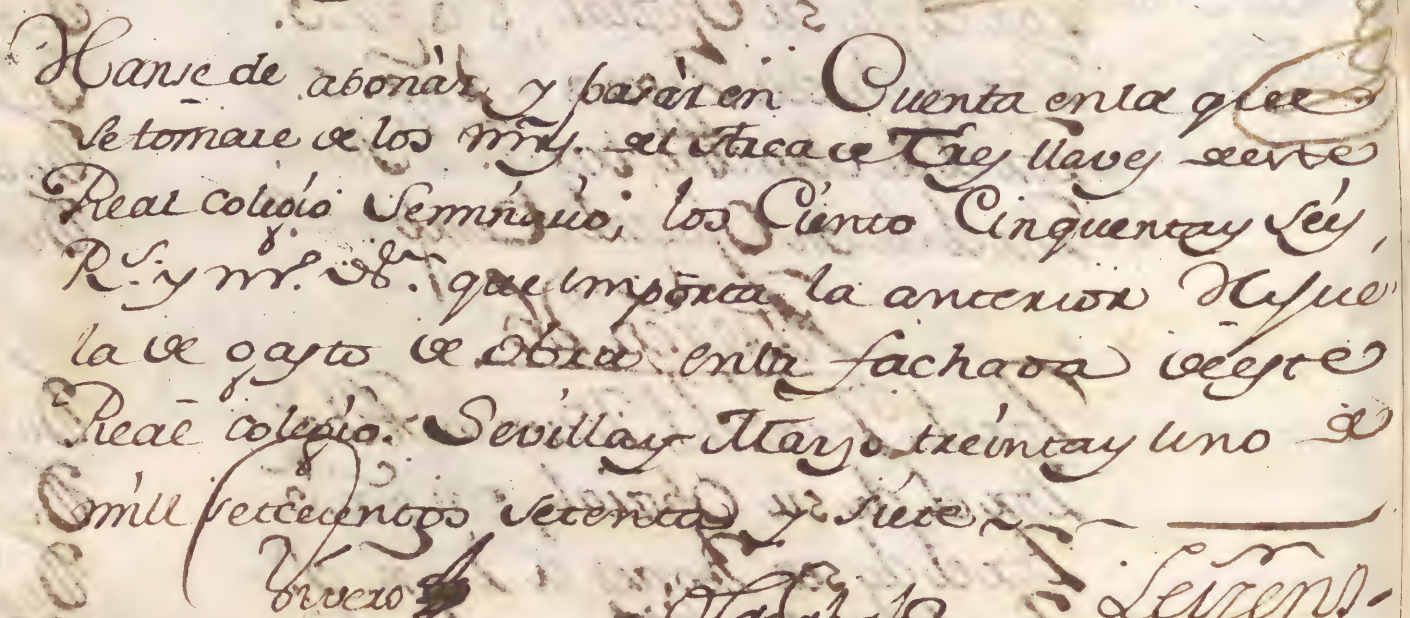 Hanse de abonár y pasár en Cuenta enla que
se tomare de los mrs. del Arca de Tres llaves deeste
Real colegio Seminario; los Ciento Cinquentay seis,
Rs. y mrs. de Vn. que importa la anterior Requé
la de gasto de obra enla fachada deeste
Real colegio. Sevillay Mayo treintay uno de
mill setecientos setenta y siete
Vivero